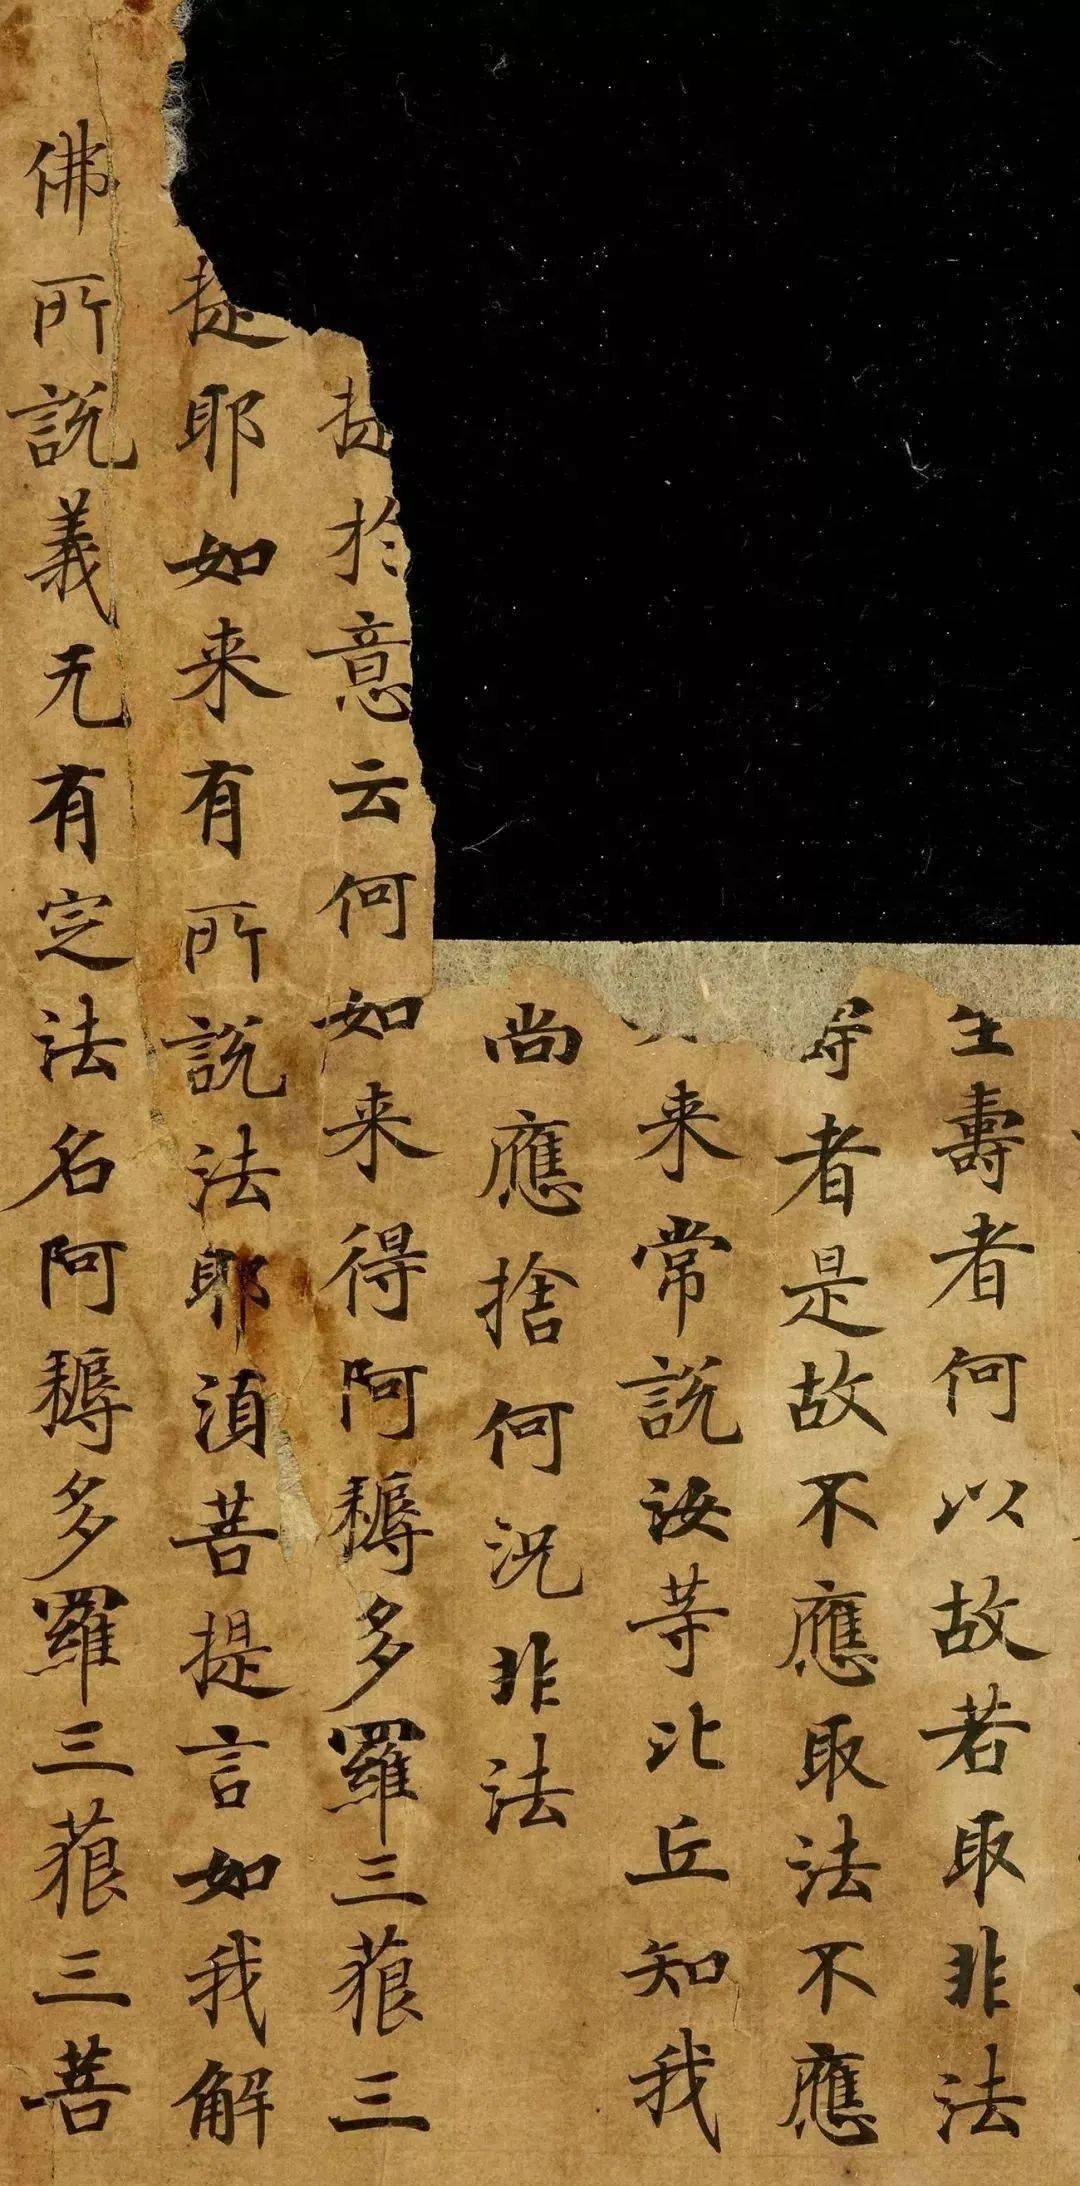 生壽者何以故若取非法
壽者是故不應取法不應
来常說汝等比丘知我
尚應捨何況非法
提於意云何如来得阿耨多羅三藐三
提耶如来有所說法耶湏菩提言如我解
佛所說義无有定法名阿耨多羅三藐三菩